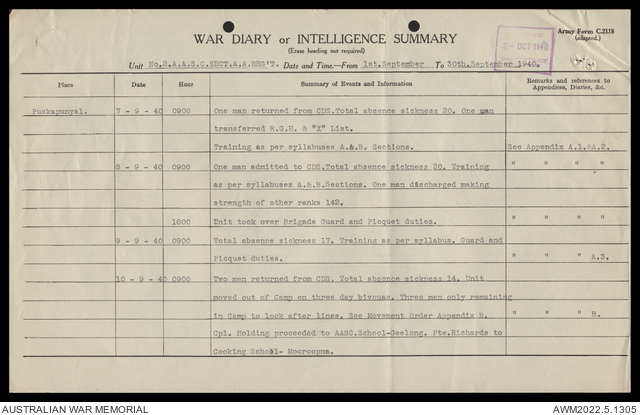 WAR DIARY or INTELLIGENCE SUMMARY
Army Form C.2118
(adapted.)
(Erase heading not required)
OCT 1940
Unit No.2.A.A.S.C.SECT.A.A.REG'T. Date and Time.—From 1st.September To 30th.September 1940.
Place Date Hour Summary of Events and Information Remarks and references to Appendices, Diaries, &c.
Puckapunyal. 7 - 9 - 40 0900 One man returned from CDS.Total absence sickness 20. One man
transferred R.G.H. & "X" List.
Training as per syllabuses A.&.B. Sections. See Appendix A.1.&A.2.
8 - 9 - 40 0900 One man admitted to CDS.Total absence sickness 20. Training " " "
as per syllabuses A.&.B.Sections. One man discharged making
strength of other ranks 142.
1800 Unit took over Brigade Guard and Picquet duties. " " "
9 - 9 - 40 0900 Total absence sickness 17. Training as per syllabus. Guard and
Picquet duties. " " A.3.
10 - 9 - 40 0900 Two men returned from CDS. Total absence sickness 14. Unit
moved out of Camp on three day bivouac. Three men only remaining
in Camp to look after lines. See Movement Order Appendix B. " " B.
Cpl. Holding proceeded to AASC.School-Geelong. Pte.Richards to
Cooking School- Mooroopma.
AUSTRALIAN WAR MEMORIAL
AWM2022.5.1305